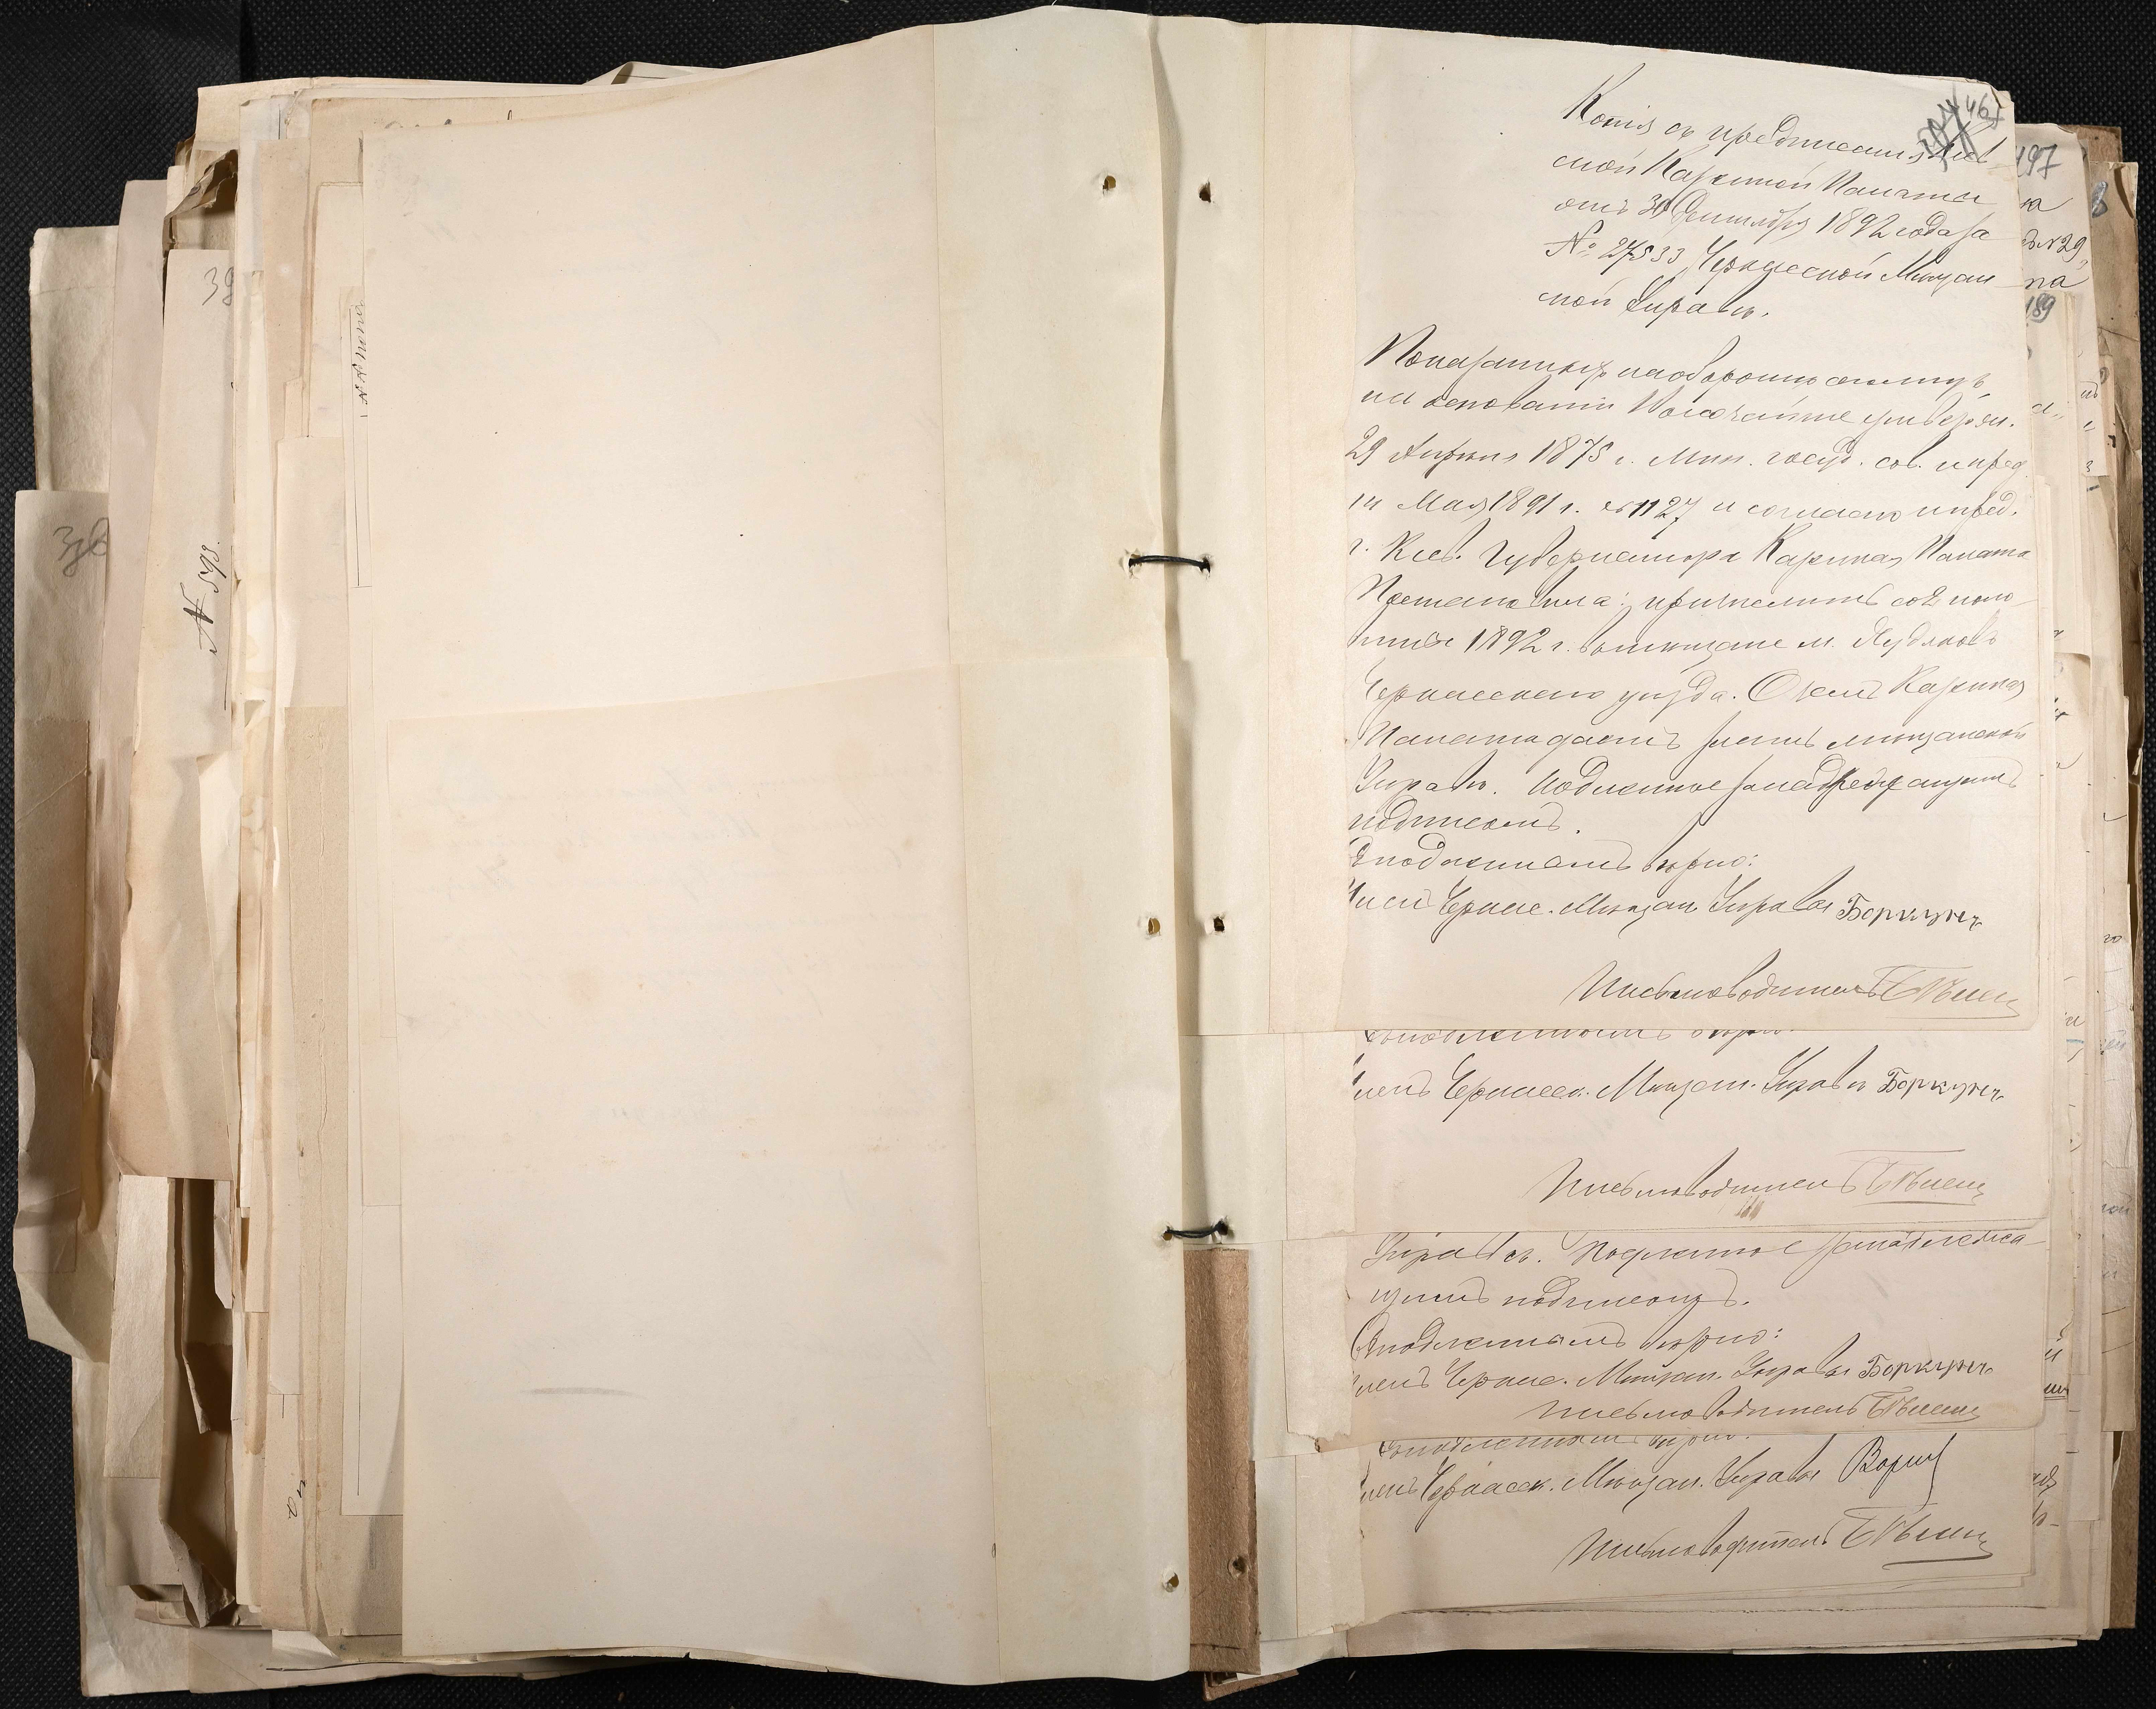 46
Копія съ предписанія Кіев
ской Казенной Палаты
отъ 30 Сентября 1892 года за
№ 27533 Черкасской Мѣщан
ской Управѣ.
Показанныхъ на оборотѣ
на основаніи Высочайше утвержд.
29 Апрѣля 1875 г. Мнѣн. госуд. сов. и пред
Мая 1891 г. № 1127 и согласно пред.
г. Кіев. Губернатора Казенная Палата
Постановила: причислить со 2 поло
вины 1892 г. въ мѣщане м.
Черкасскаго уѣзда. О чемъ Казенная
Палата даетъ знать мѣщанской
Управѣ. Подлинное за надлежащимъ
подписомъ.
Съ подлиннымъ вѣрно:
Членъ Черкас. Мѣщан. Управы Боркунъ
Письмоводитель
Съ подлиннымъ вѣрно:
Членъ Черкасск. Мѣщан. Управы Боркунъ
Письмоводитель
Управѣ. Подлинное за надлежа
щимъ подписомъ.
Съ подлиннымъ вѣрно:
Членъ Черкас. Мѣщан. Управы Боркунъ
Письмоводитель
Съ подлиннымъ вѣрно:
Членъ Черкасск. Мѣщан. Управы
Письмоводитель
197
189
№ 598.
38